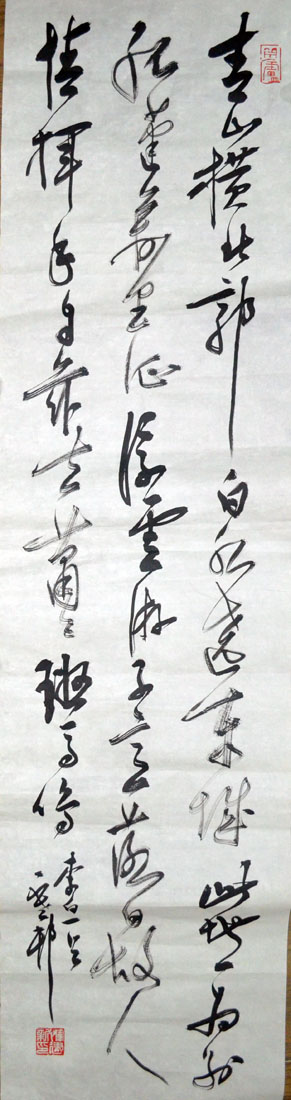 青山橫北郭白水遶東城此地一為別
孤蓬萬里征浮雲游子意落日故人
情揮手自茲去蕭〻班馬鳴